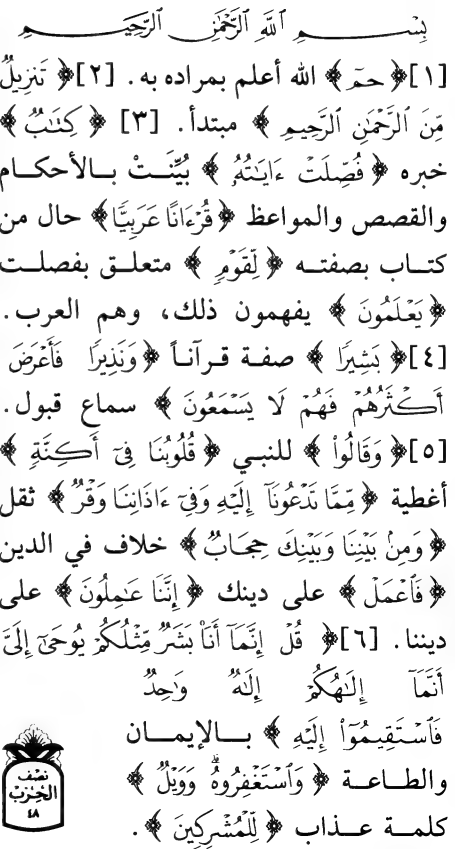 بِسْمِ ٱللَّهِ ٱلرَّحْمَٰنِ ٱلرَّحِيمِ
[١]﴿حمٓ﴾ الله أعلم بمراده به. [٢]﴿تَنزِيلٌ
مِّنَ ٱلرَّحْمَٰنِ ٱلرَّحِيمِ﴾ مبتدأ. [٣] ﴿كِتَٰبٌ﴾
خبره ﴿فُصِّلَتْ ءَايَٰتُهُۥ﴾ بُيِّنَتْ بالأحكام
والقصص والمواعظ ﴿قُرْءَانًا عَرَبِيًّا﴾ حال من
كتاب بصفته ﴿لِّقَوْمٍ﴾ متعلق بفصلت
﴿يَعْلَمُونَ﴾ يفهمون ذلك، وهم العرب.
[٤]﴿بَشِيرًا﴾ صفة قرآناً ﴿وَنَذِيرًا فَأَعْرَضَ
أَكْثَرُهُمْ فَهُمْ لَا يَسْمَعُونَ﴾ سماع قبول.
[٥]﴿وَقَالُوا۟﴾ للنبي ﴿قُلُوبُنَا فِىٓ أَكِنَّةٍ﴾
أغطية ﴿مِّمَّا تَدْعُونَآ إِلَيْهِ وَفِىٓ ءَاذَانِنَا وَقْرٌ﴾ ثقل
﴿وَمِنۢ بَيْنِنَا وَبَيْنِكَ حِجَابٌ﴾ خلاف في الدين
﴿فَٱعْمَلْ﴾ على دينك ﴿إِنَّنَا عَٰمِلُونَ﴾ على
ديننا. [٦]﴿قُلْ إِنَّمَآ أَنَا۠ بَشَرٌ مِّثْلُكُمْ يُوحَىٰٓ إِلَىَّ
أَنَّمَآ إِلَٰهُكُمْ إِلَٰهٌ وَٰحِدٌ
فَٱسْتَقِيمُوٓا۟ إِلَيْهِ﴾ بالإيمان
والطاعة ﴿وَٱسْتَغْفِرُوهُ ۗ وَوَيْلٌ﴾
كلمة عذاب ﴿لِّلْمُشْرِكِينَ﴾.
نصف
الحزب
٤٨